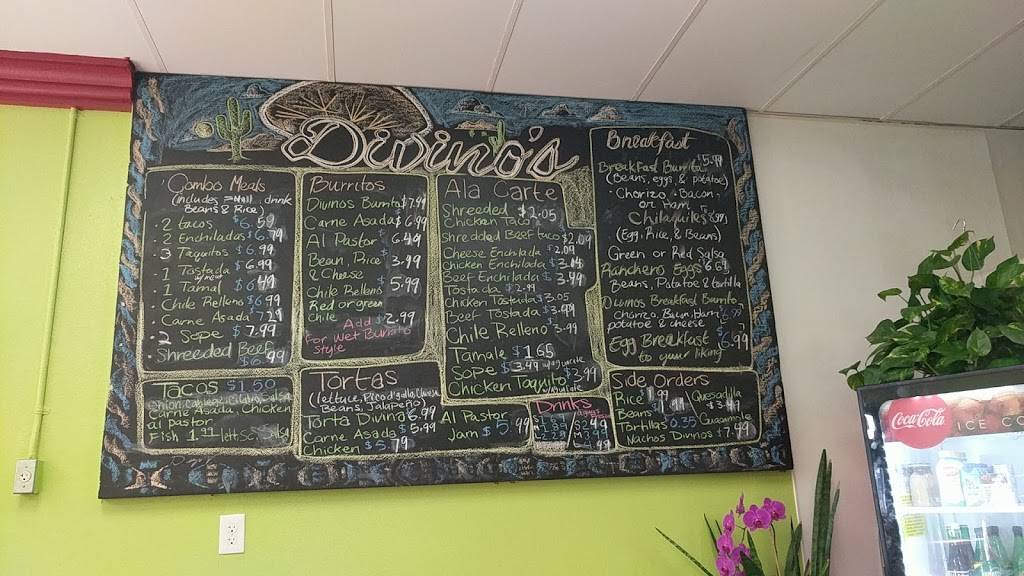 Divino's
Combo Meals
(includes small drink
Beans & Rice)
2 tacos $6.
2 Enchiladas
3 Taquitos $6.99
1 Tostada $6.99
1 Tamal $6.49
Chile Relleno $6.99
Carne Asada $7.29
2 Sope $7.99
Shreeded Beef
.99
Tacos $1.50
Carne Asada, Chicken
al pastor
Fish
Burritos
Divinos Burrito $7.99
Carne Asada $6.99
Al Pastor $6.49
Bean, Rice $3.99
& Cheese
Chile Relleno 5.99
Red or green
Chile $2.99
Add
For Wet Burrito
style
Tortas
(lettuce, Pico d gallo,
Beans, Jalapeño)
Torta Divina 6.99
Carne Asada $5.99
Chicken $5.79
Al Pastor
Jam $5.99
Ala Carte
Shreeded $2.05
Chicken Taco
Shredded Beef taco $2.09
Cheese Enchilada
Chicken Enchilada
Beef Enchilada
Tostada $2.99
Chicken Tostada $3.05
Beef Tostada $3.99
Chile Relleno
Tamale $1.65
Sope $3.49
Chicken Taquito $2.99
Drinks
Breakfast
Breakfast Burrito $5.99
(Beans, eggs & potatoe)
Chorizo, Bacon,
or Ham
Chilaquiles
(Egg, Rice, & Beans)
Green or Red Salsa
Ranchero Eggs
Beans, Potatoe & tortilla
Divinos Breakfast Burrito
Chorizo, Bacon, Ham,
potatoe & cheese
Egg Breakfast $6.99
to your liking
Side Orders
Rice 1.99
Quesadilla
Beans
Tortillas 0.35
Guacamole
Nachos Divinos $7.49
Coca-Cola
ICE CO